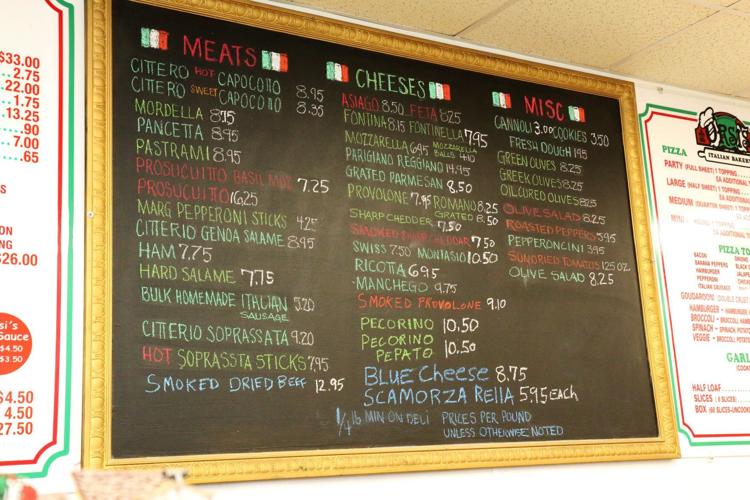 $33.00
2.75
22.00
1.75
13.25
.90
7.00
.65
$26.00
$4.50
$3.50
$4.50
4.50
27.50
MEATS
CITTERO HOT CAPOCOTTO 8.95
CITTERO SWEET CAPOCOTTO 8.35
MORDELLA 8.95
PANCETTA 8.95
PASTRAMI 8.95
PROSUCUITTO BASIL MOZ 7.25
PROSUCUITTO 16.25
MARG PEPPERONI STICKS 4.25
CITTERIO GENOA SALAME 8.95
HAM 7.75
HARD SALAME 7.75
BULK HOMEMADE ITALIAN SAUSAGE 5.20
CITTERIO SOPRASSATA 9.20
HOT SOPRASSTA STICKS 7.95
SMOKED DRIED BEEF 12.95
CHEESES
ASIAGO 8.50 FETA 8.25
FONTINA 8.15 FONTINELLA 7.95
MOZZARELLA 6.95 MOZZARELLA BALLS 4.40
PARIGIANO REGGIANO 14.95
GRATED PARMESAN 8.50
PROVOLONE 7.95 ROMANO 8.25
GRATED 8.50
SHARP CHEDDER 7.50
SMOKED SHARP CHEDDAR 7.50
SWISS 7.50 MONTASIO 10.50
RICOTTA 6.95
MANCHEGO 9.75
SMOKED PROVOLONE 9.10
PECORINO 10.50
PECORINO PEPATO 10.50
BLUE CHEESE 8.75
SCAMORZA RELLA 5.95 EACH
1/4 lb MIN ON DELI PRICES PER POUND
UNLESS OTHERWISE NOTED
MISC
CANNOLI 3.00 COOKIES 3.50
FRESH DOUGH 1.95
GREEN OLIVES 8.25
GREEK OLIVES 8.25
OIL CURED OLIVES 8.25
OLIVE SALAD 8.25
ROASTED PEPPERS 5.95
PEPPERONCINI 3.95
SUNDRIED TOMATOS 1.25 OZ
OLIVE SALAD 8.25
ORSI'S
ITALIAN BAKERY
PIZZA
PARTY (FULL SHEET) 1 TOPPING
EA ADDITIONAL
LARGE (HALF SHEET) 1 TOPPING
EA ADDITIONAL
MEDIUM (QUARTER SHEET) 1 TOPPING
PIZZA TO
BACON
BANANA PEPPERS
HAMBURGER
PEPPERONI
ITALIAN SAUSAGE
GOUDAROONI DOUBLE CRUST
HAMBURGER
BROCCOLI
SPINACH
VEGGIE
GARL
HALF LOAF
SLICES
BOX